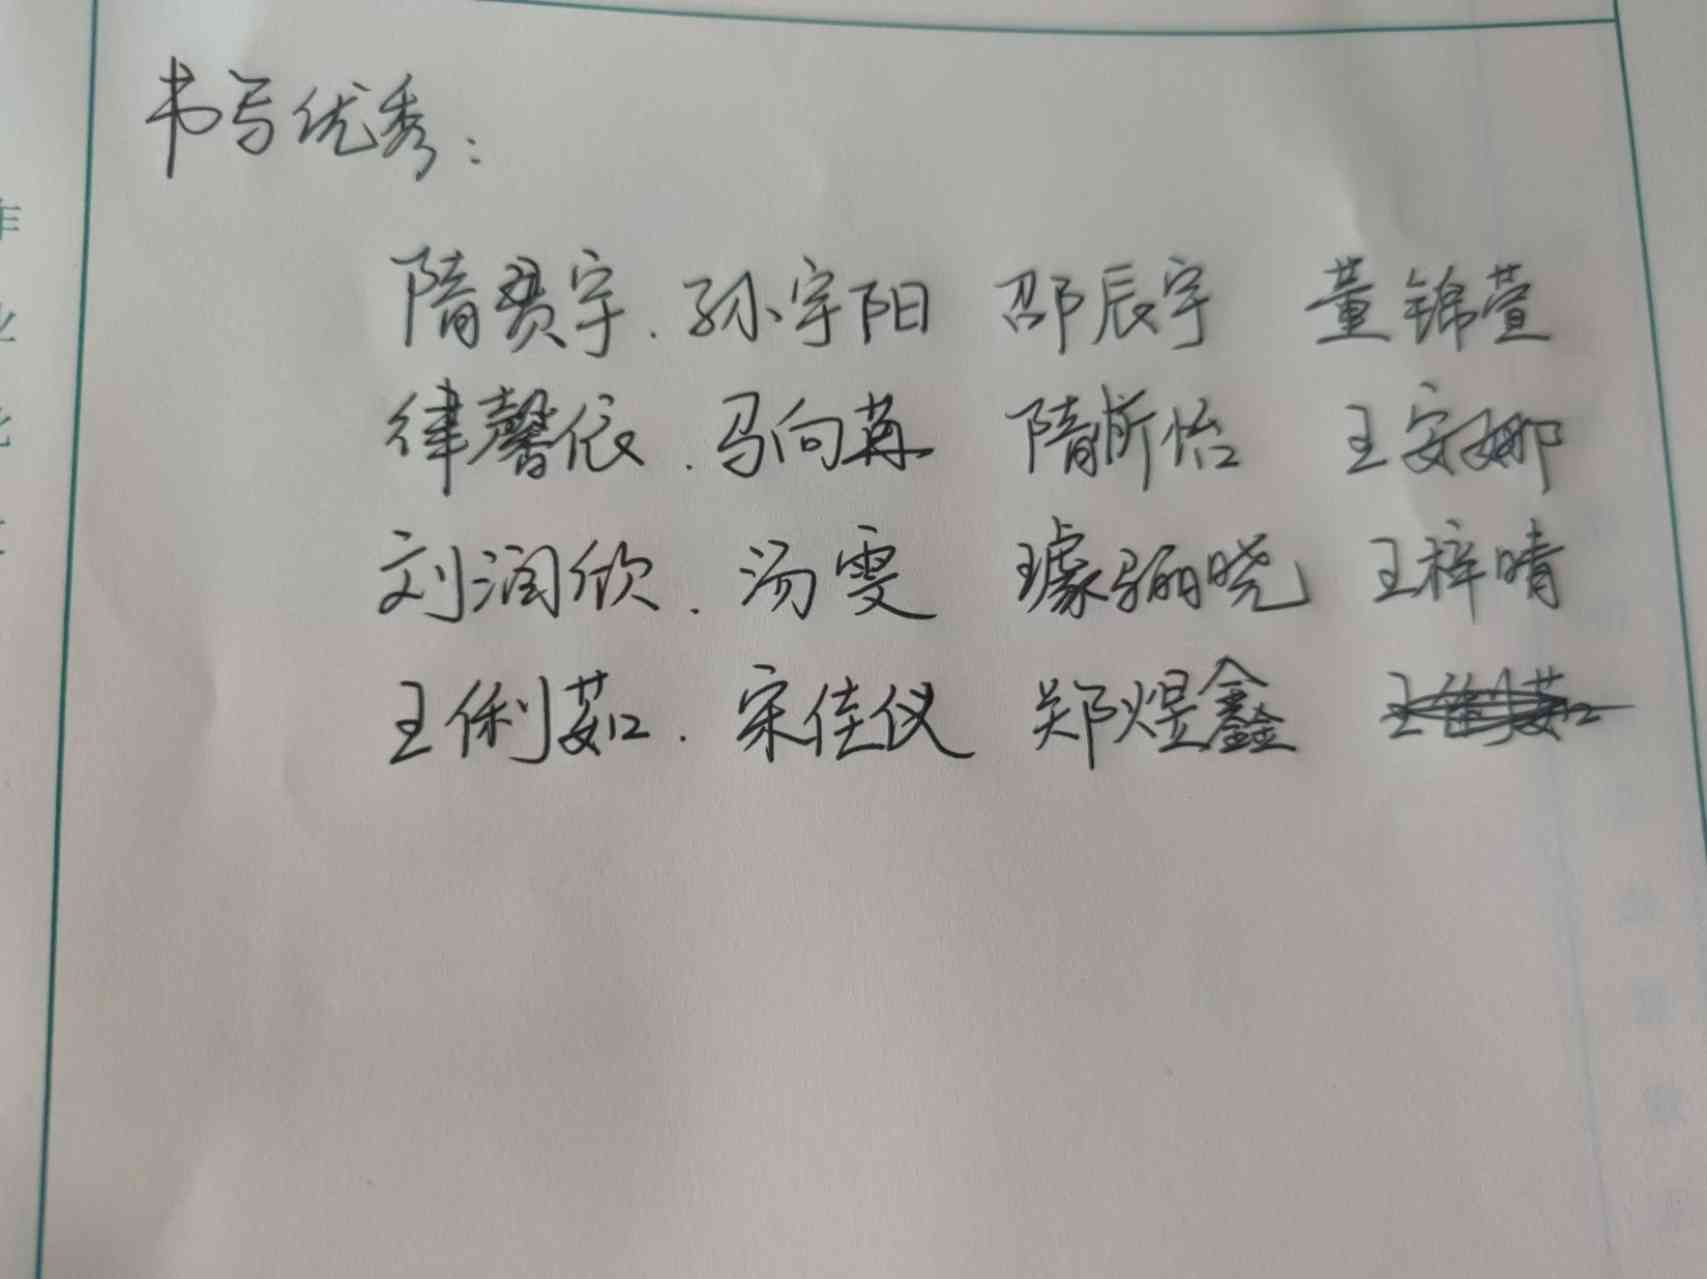 书写优秀：
隋贤宇. 孙宇阳 邵辰宇 董锦萱
律馨依. 马向苒 隋昕怡 王安娜
刘润欣. 汤雯 璩骊晓 王梓晴
王俐茹. 宋佳仪 郑煜鑫 王俐茹
作
业